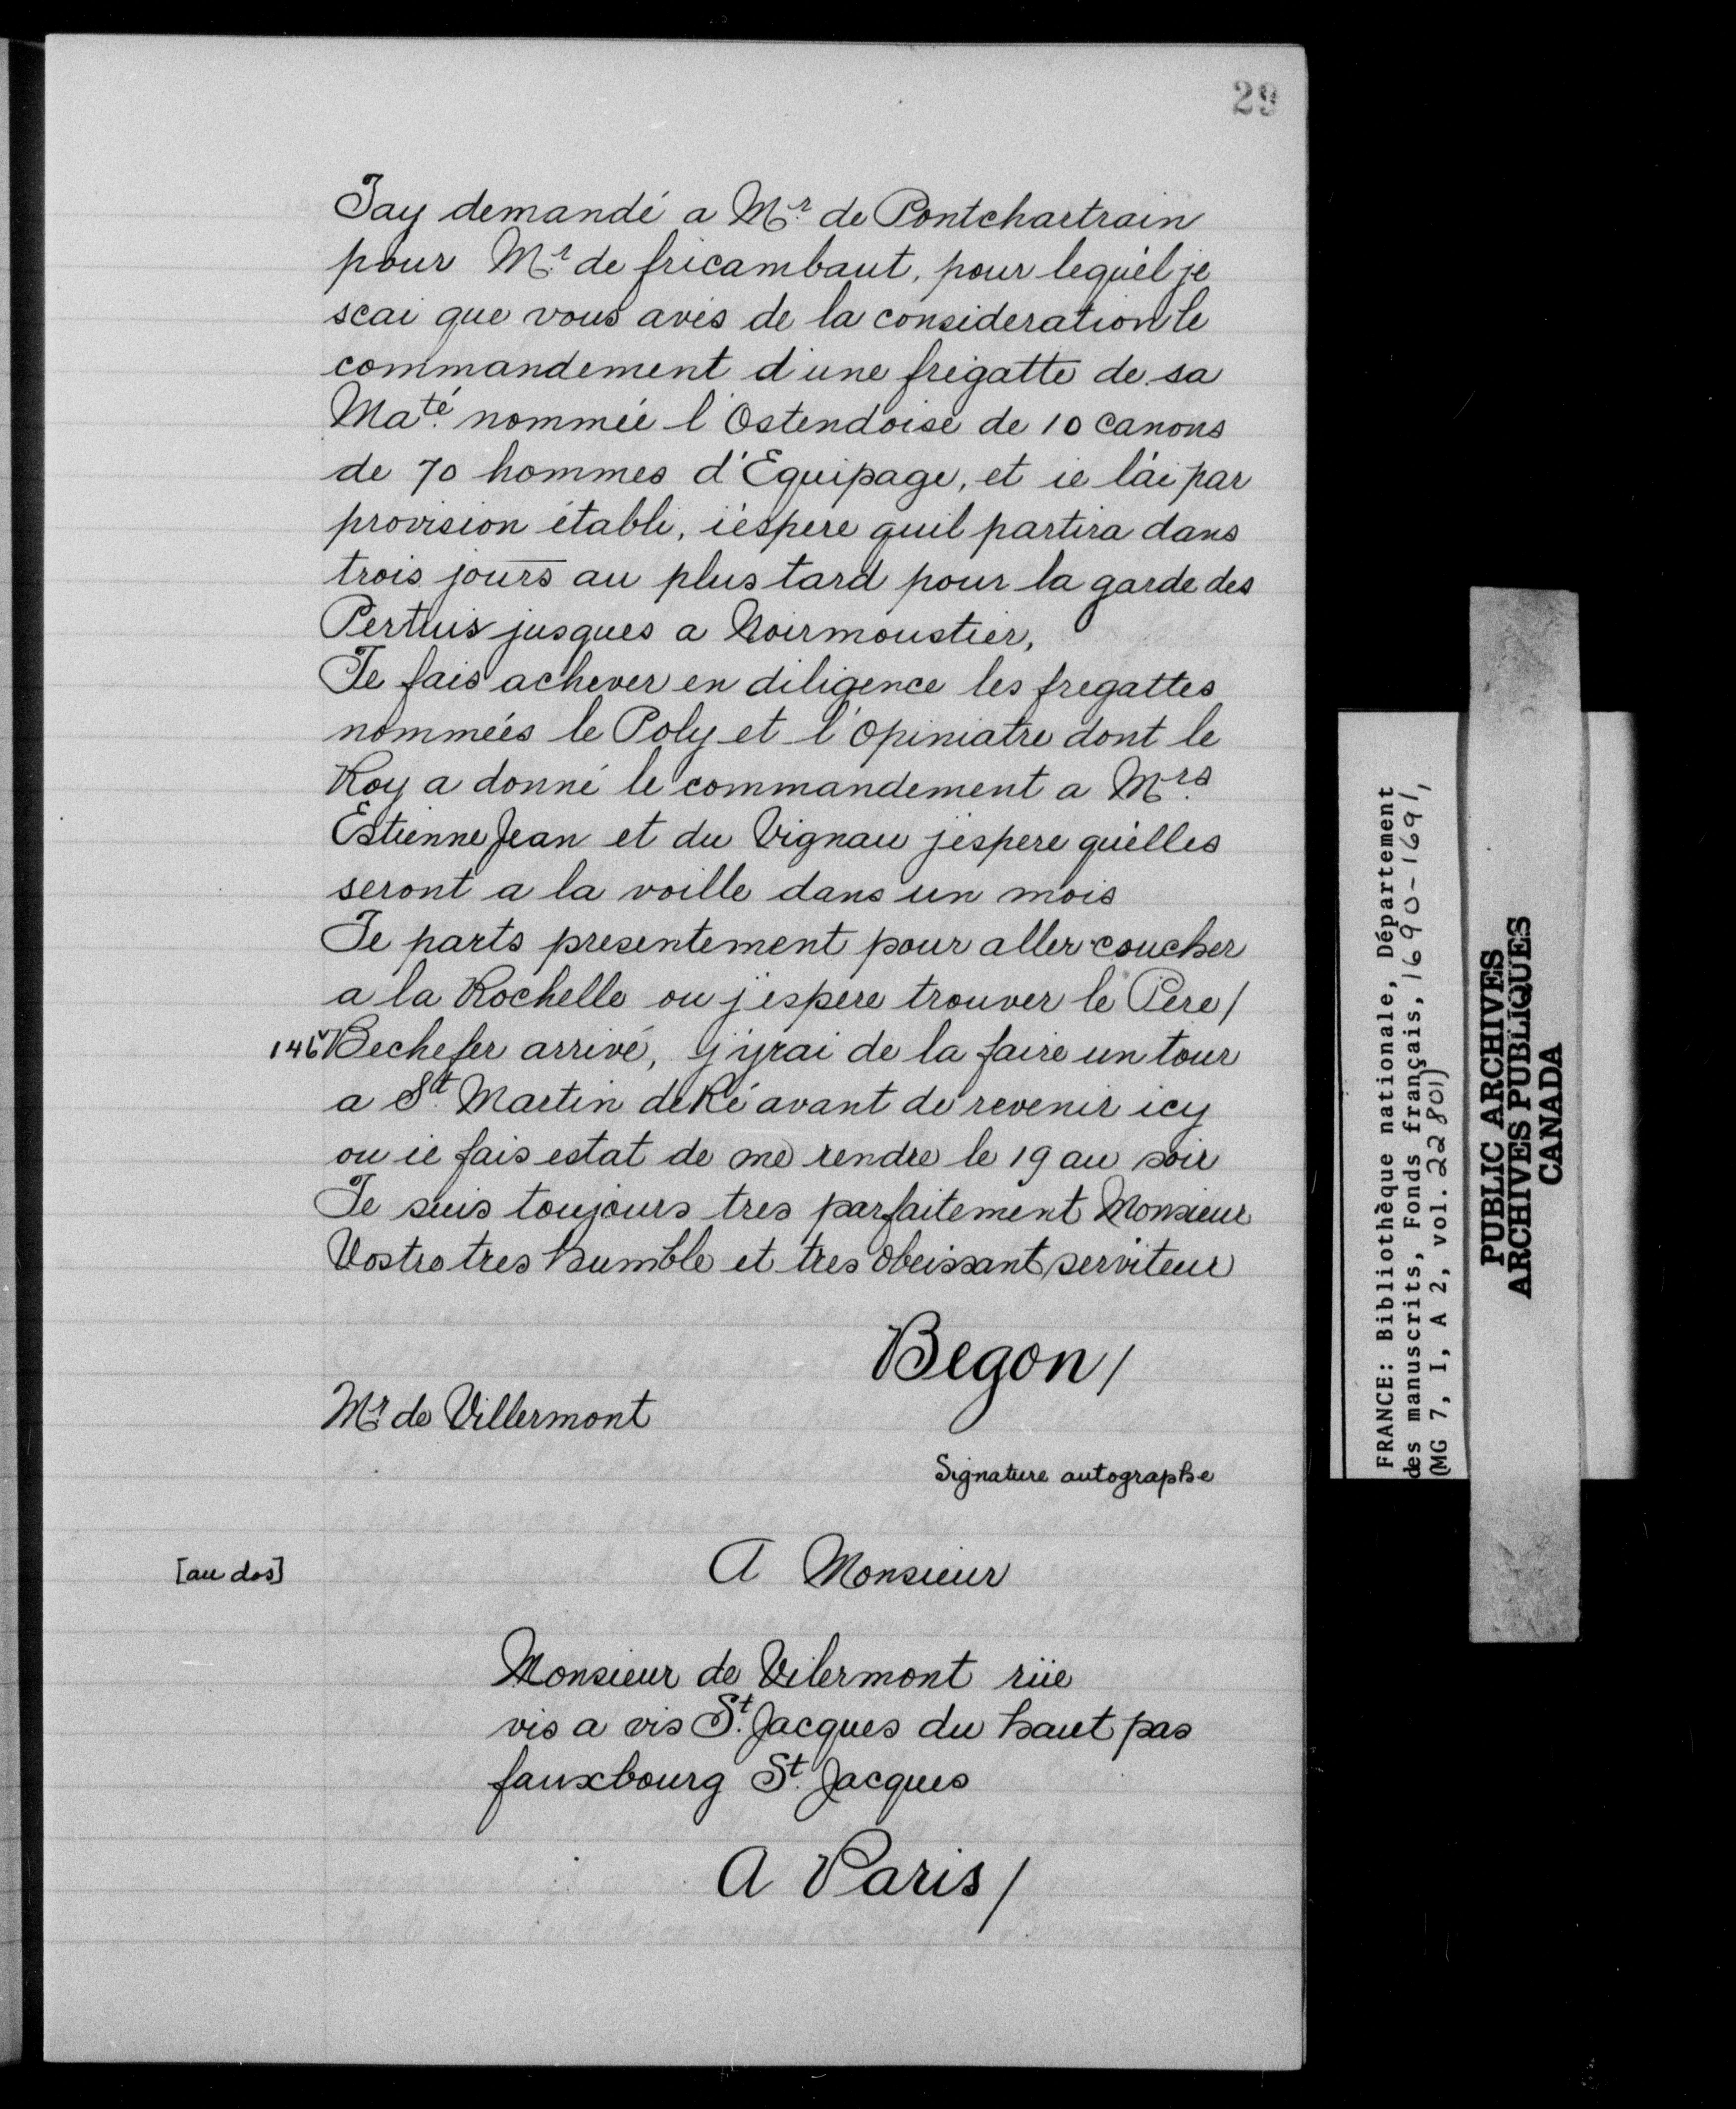 29
Jay demandé a Mr. de Pontchartrain
pour Mr. de fricambaut, pour lequél je
scai que vous avés de la consideration le
commandement d'une frigatte de sa
Maté. nommée l'Ostendoise de 10 canons
de 70 hommes d'Equipage, et ie lái par
provision établi, iéspere quil partira dans
trois jours au plus tard pour la garde des
Pertuis jusques a Noirmoustier,
Je fais achever en diligence les fregattes
nommées le Poly et l'opiniatre dont le
Roy a donné le commandement a Mrs.
Estienne Jean et du Vignau jéspere quélles
seront a la voille dans un mois
Je parts presentement pour aller coucher
a la Rochelle ou j'espere trouver le Pere/
146v Bechefer arrivé, j'yrai de la faire un tour
a St. Martin de Ré avant de revenir icy
ou ie fais estat de me rendre le 19 au soir
Je suis toujours tres parfaitement Monsieur
Vostre tres humble et tres obeissant serviteur
Begon/
Mr. de Villermont
Signature autographe
[au dos]
A Monsieur
Monsieur de Vilermont rüe
vis a vis St. Jacques du haut pas
fauxbourg St. Jacques
A Paris/
FRANCE: Bibliothèque nationale, Département
des manuscrits, Fonds français, 1690-1691,
(MG 7, I, A 2, vol. 22801)
PUBLIC ARCHIVES
ARCHIVES PUBLIQUES
CANADA